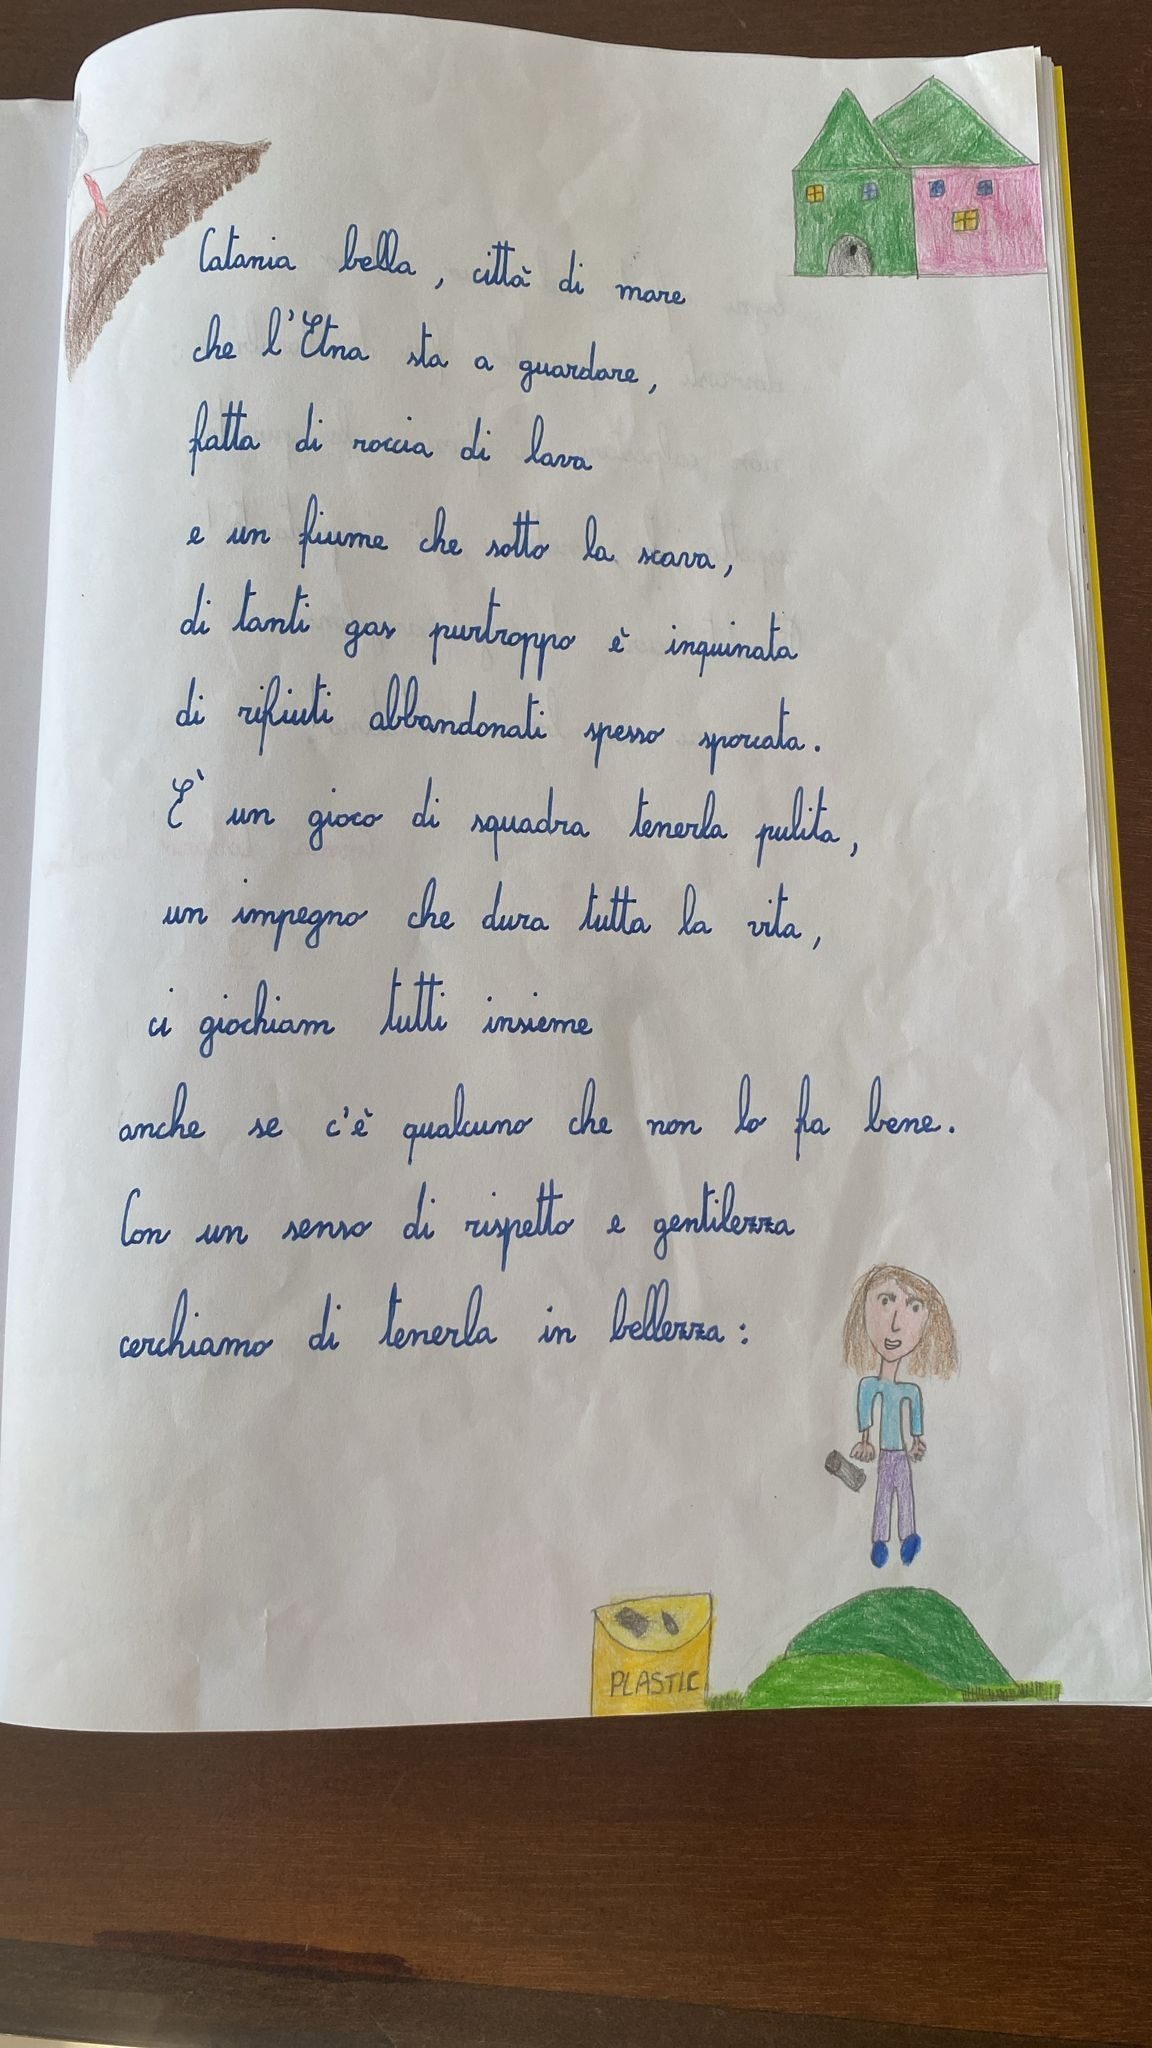 Catania bella, città di mare
che l'Etna sta a guardare,
fatta di roccia di lava
e un fiume che sotto la scava,
di tanti gas purtroppo è inquinata
di rifiuti abbandonati spesso sporcata.
E' un gioco di squadra tenerla pulita,
un impegno che dura tutta la vita,
ci giochiam tutti insieme
anche se c'è qualcuno che non lo fa bene.
Con un senso di rispetto e gentilezza
cerchiamo di tenerla in bellezza:
PLASTIC